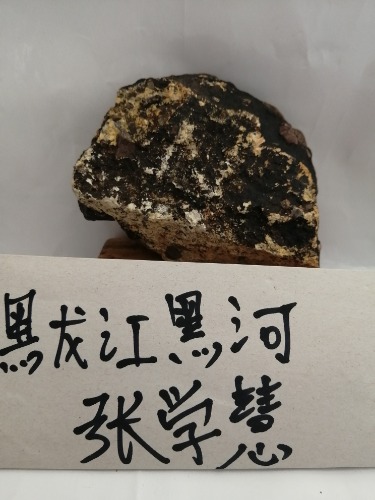 黑龙江黑河
张学慧